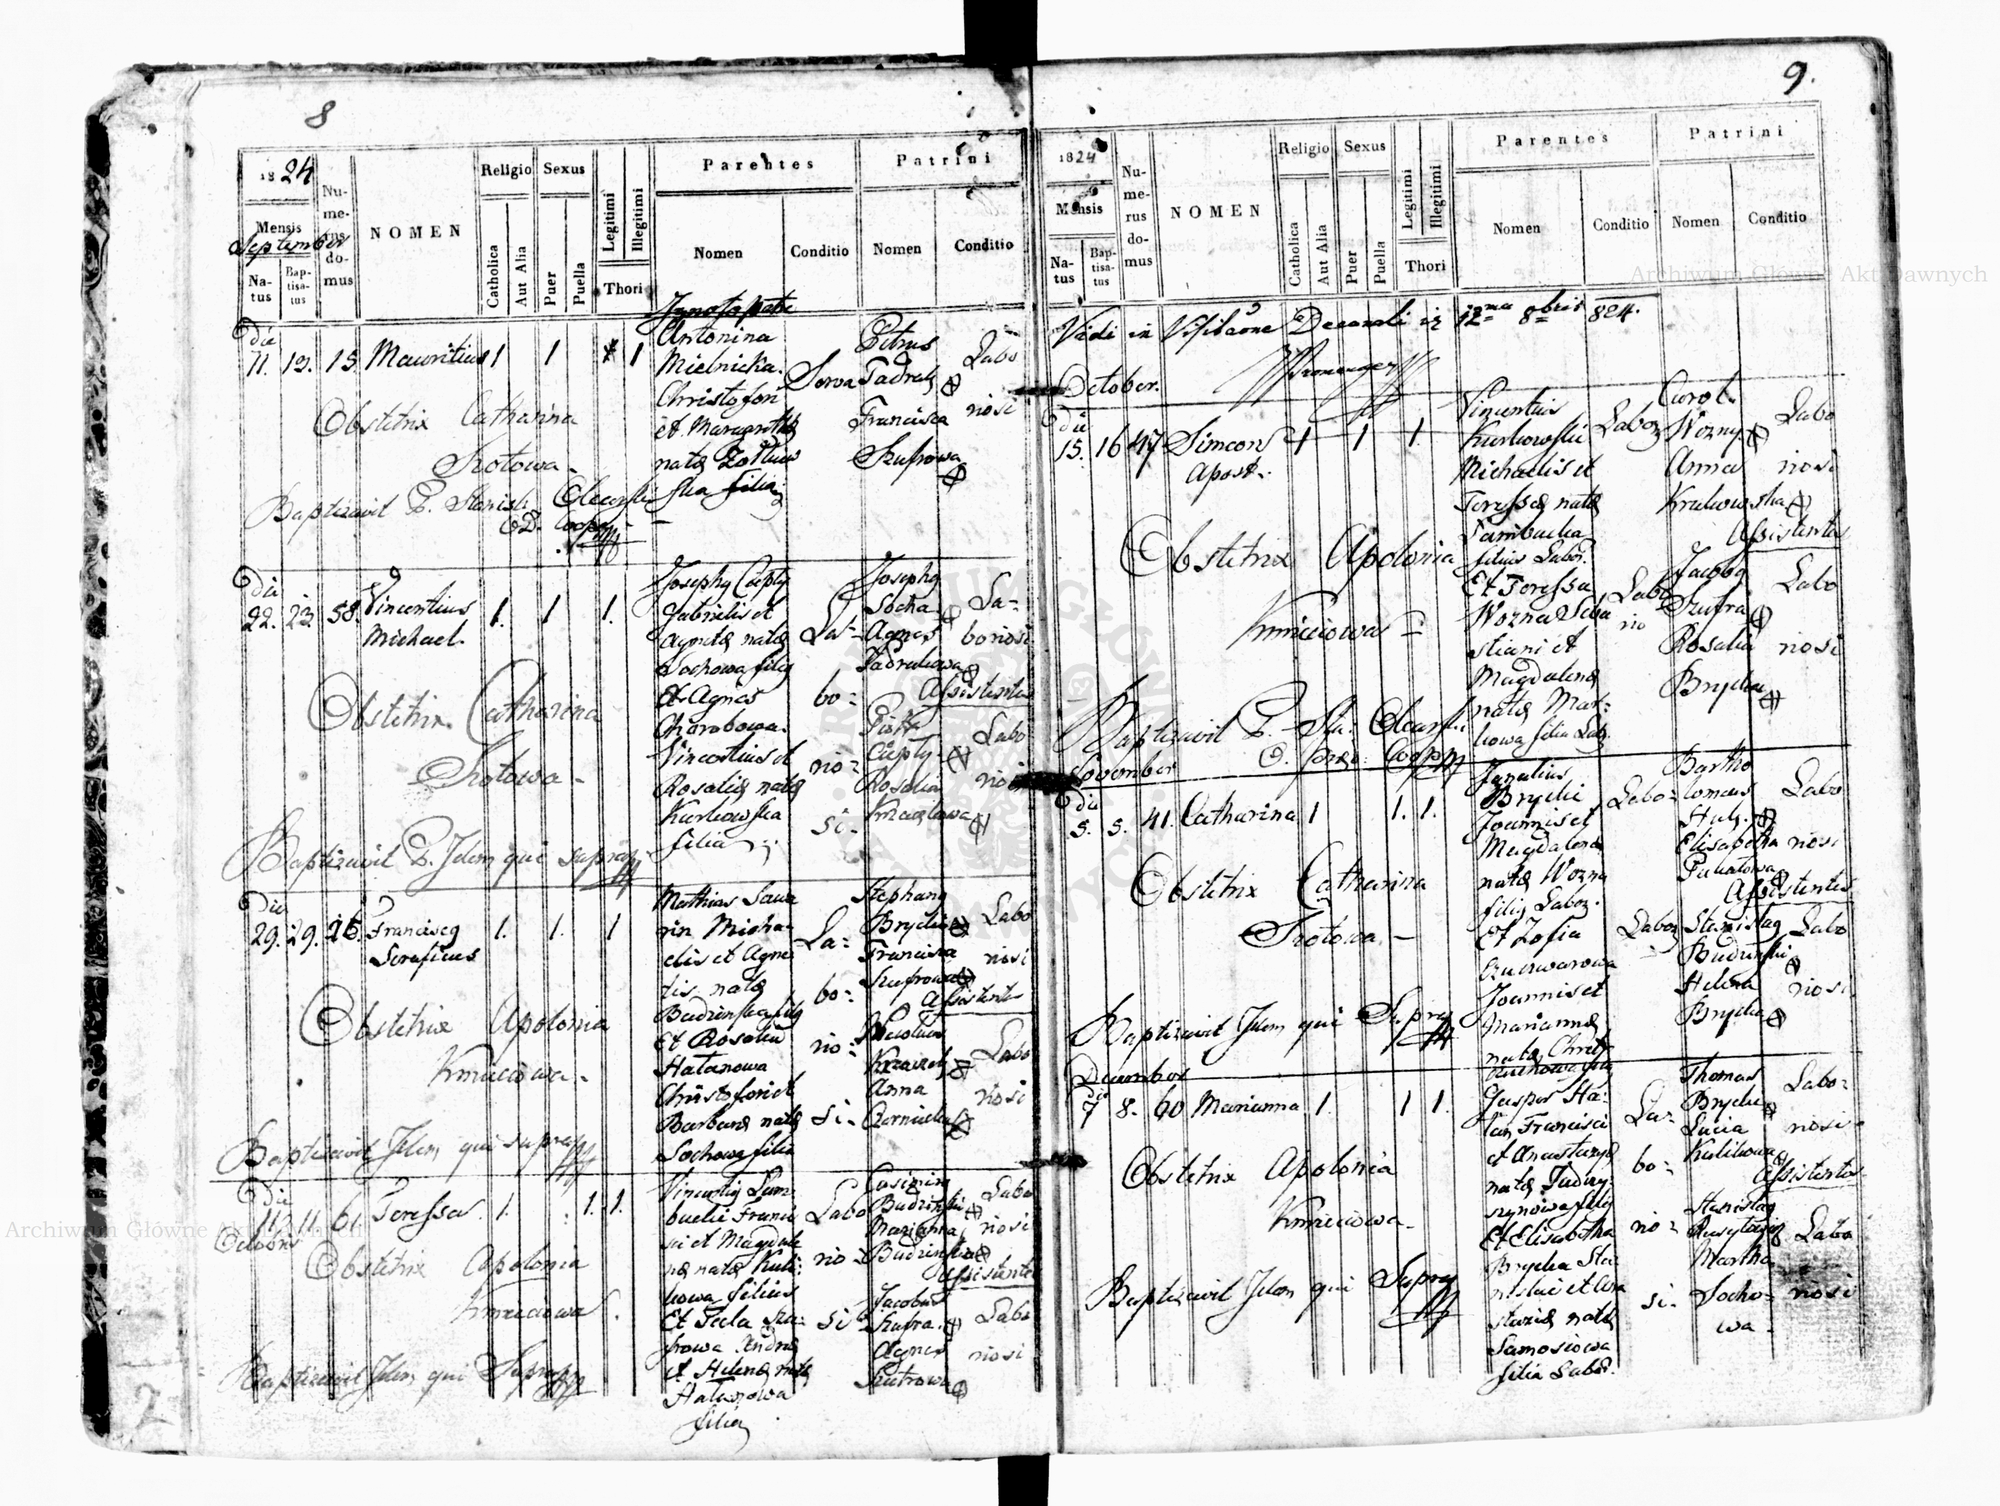 8
1824
Mensis
September
Na-
tus
Bap-
tisa-
tus
Nu-
me-
rus
do-
mus
NOMEN
Religio
Catholica
Aut Alia
Sexus
Puer
Puella
Legitimi
Illegitimi
Thori
Parentes
Nomen
Conditio
Patrini
Nomen
Conditio
die
11. 12. 15 Mauritius 1 1 1
Antonina
Mielnicka
Christofori
et Margrethæ
natæ
filia
Serva
Petrus
Francisca
Szufrowa
Labo
riosi
Obstetrix Catharina
Srotowa
Baptizavit P. Stanisl:
die
22. 23. 58. Vincentius 1. 1 1.
Michael.
Josephg Ciepły
Gabrielis et
Agnetæ natæ
Sochowa filg
et Agnes
Chorobowa
Vincentius et
Rosaliæ natæ
Kurkowska
filia
La-
bo-
rio-
si-
Josephg
Socha
Agnes
Assistentes
Piotr
Ciepły
Rosalia
La-
boriosi
Labo
rio
Obstetrix Catharina
Srotowa -
Baptizavit P. Idem qui supra
die
29. 29. 26. Franciscg 1. 1. 1
Seraficus
Mathias Sawa
rin Micha-
elis et Agne
tis natæ
Budzinska filg
Et Rosalia
Hatanowa
Christofori et
Barbaræ natæ
Sochowa filia
La-
bo-
rio-
si-
Stephang
Brydia
Francisca
Szufrowa
Assistentes
Anna
Labo
riosi
Labo
riosi
Obstetrix Apolonia
Kmieciowa -
Baptizavit Idem qui supra
die
11. 11. 61. Teressa. 1. 1. 1.
Octobris
Vincentig
Franci
sci et Magdale
næ natæ Kuli-
kowa filius
Et Tecla Szu-
frowa Andreæ
et Helenæ natæ
Hatanowa
filia
Labo
rio
si
Casimirg
Budzinski
Marianna
Budzinska
Assistentes
Jacobus
Szufra
Agnes
Labo
riosi
Labo
riosi
Obstetrix Apolonia
Kmieciowa
Baptizavit Idem qui Supra
2
9.
1824
Mensis
Na-
tus
Bap-
tisa-
tus
Nu-
me-
rus
do-
mus
NOMEN
Religio
Catholica
Aut Alia
Sexus
Puer
Puella
Legitimi
Illegitimi
Thori
Parentes
Nomen
Conditio
Patrini
Nomen
Conditio
Vidi in Visitaone Decanali 12ma 8bris 824.
October.
die
15. 16 47 Simeon 1 1 1.
Apost.
Vincentius
Kurkowski
Michaelis et
Teressæ natæ
filius Labor.
Et Teressa
Wozna Seba
stiani et
Magdalenæ
natæ Mar-
kowa filia Lab.
Labor
Labo
rio
Carol.
Wozny
Anna
Krukowska
Assistentes
Jacobg
Szufra
Rosalia
Brydia
Labo
riosi
Labo
riosi
Obstetrix Apolonia
Kmieciowa
Baptizavit P. Sta:
November
die
5. 5. 41. Catharina 1 1. 1.
Ignatius
Brydic
Joannis et
Magdalenæ
natæ Wozna
filig Labor.
Et Zofia
Joannis et
Mariannæ
natæ
Labo-
Labor
Bartho
lomeus
Elisabetha
Assistentes
Stanislag
Budzinski
Helena
Brydia
Labo
riosi
Labo
riosi
Obstetrix Catharina
Srotowa -
Baptizavit Idem qui Supra
December
die
7 8. 60 Marianna 1. 1 1.
Gasper Ha-
tan Francisci
et Anastasiæ
natæ
Et Elisabetha
Brydia Sta
nislai et Ana
stasiæ natæ
Samosiowa
filia Labor.
La-
bo-
rio-
si-
Thomas
Brydia
Lucia
Kulikowa
Assistentes
Stanislag
Martha
Socho-
wa -
Labo-
riosi
Labo
riosi
Obstetrix Apolonia
Kmieciowa -
Baptizavit Idem qui Supra
Archiwum Główne Akt Dawnych
Archiwum Główne Akt Dawnych